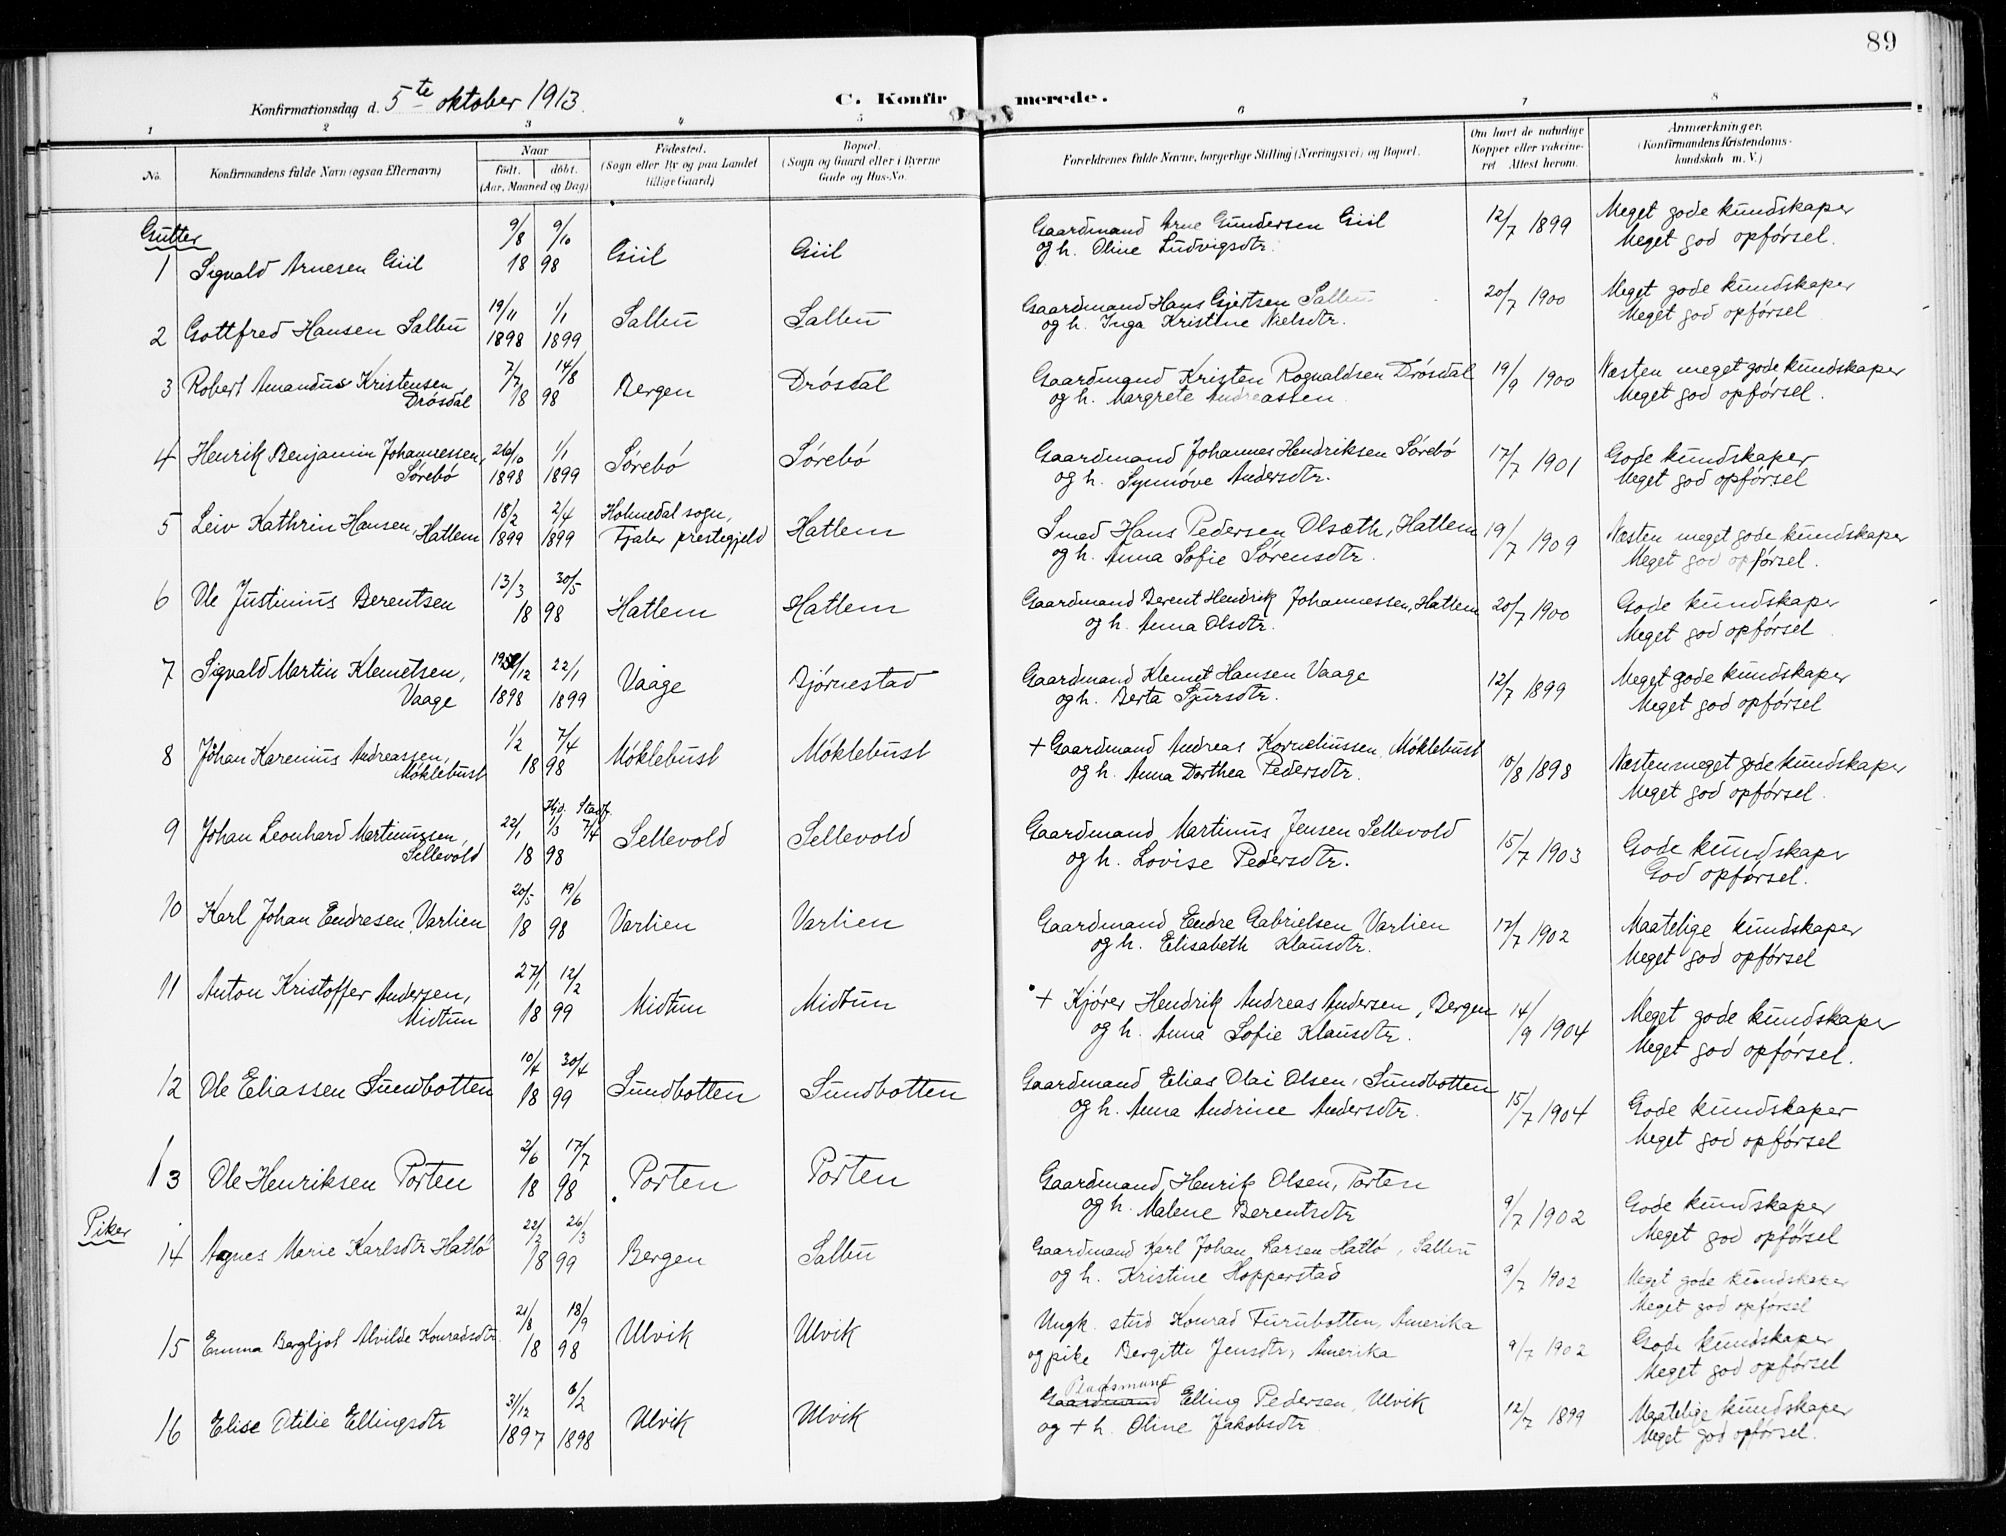 89
Konfirmationsdag d. 5te oktober 1913.
C. Konfirmerede.
1 2 3 4 5 6 7 8
No.
Konfirmandens fulde Navn (ogsaa Efternavn)
Naar
født. døbt.
(Aar, Maaned og Dag)
Fødested.
(Sogn eller By og paa Landet
tillige Gaard)
Bopæl.
(Sogn og Gaard eller i Byerne
Gade og Hus-No.
Forældrenes fulde Navne, borgerlige Stilling (Næringsvei) og Bopæl.
Om havt de naturlige
Kopper eller vakcine-
ret Attest herom.
Anmærkninger.
(Konfirmandens Kristendoms-
kundskab m. V.)
Gutter
1 Sigvald Arnesen Giil 9/8 18 9/10 98 Giil Giil Gaardmand Arne Gundersen Giil 12/7 1899 Meget gode kundskaper
og h. Oline Ludvigsdtr. Meget god opførsel.
2 Gottfred Hansen Salbu 19/11 1898 1/1 1899 Salbu Salbu Gaardmand Hans Gjertsen Salbu 20/7 1900 Meget gode kundskaper
og h. Inga Kristine Nielsdtr. Meget god opførsel
3 Robert Amandus Kristensen, 7/7 18 14/8 98 Bergen Drøsdal Gaardmand Kristen Rognaldsen Drøsdal 19/9 1900 Næsten meget gode kundskaper
Drøsdal og h. Margrete Andreassen Meget god opførsel.
4 Henrik Benjamin Johannessen, 26/10 1898 1/1 1899 Sørebø Sørebø Gaardmand Johannes Hendriksen Sørebø 17/7 1901 Gode kundskaper
Sørebø og h. Synnøve Andersdtr. Meget god opførsel
5 Leiv Kathrin Hansen, Hatlem 18/2 1899 2/4 1899 Holmedal sogn, Hatlem Smed Hans Pedersen Olsæth, Hatlem 19/7 1909 Næsten meget gode kundskaper
Fjaler prestegjeld og h. Anna Sofie Sørensdtr. Meget god opførsel.
6 Ole Justinius Berentsen 13/3 18 30/5 98 Hatlem Hatlem Gaardmand Berent Hendrik Johannessen, Hatlem 20/7 1900 Gode kundskaper
og h. Anna Olsdtr. Meget god opførsel
7 Sigvald Martin Klemetsen, /12 1898 22/1 1899 Vaage Bjørnestad Gaardmand Klemet Hansen Vaage 12/7 1899 Meget gode kundskaper
Vaage og h. Berta Sjursdtr. Meget god opførsel
8 Johan Karenius Andreassen, 1/2 18 7/4 98 Møklebust Møklebust + Gaardmand Andreas Korneliussen, Møklebust 10/8 1898 Næsten meget gode kundskaper
Møklebust og h. Anna Dorthea Pedersdtr. Meget god opførsel.
9 Johan Leonhard Martinussen, 22/1 18 Hjd. 1/3 Stadf. 7/4 98 Sellevold Sellevold Gaardmand Martinus Jensen Sellevold 15/7 1903 Gode kundskaper
Sellevold og h. Lovise Pedersdtr. God opførsel.
10 Karl Johan Endresen, Varlien 20/5 18 19/6 98 Varlien Varlien Gaardmand Endre Gabrielsen Varlien 17/7 1902 Maatelige kundskaper
og h. Elisabeth Klausdtr. Meget god opførsel
11 Anton Kristoffer Andersen, 27/1 18 12/2 99 Midtun Midtun + Kjører Hendrik Andreas Andersen, Bergen 14/9 1904 Meget gode kundskaper
Midtun og h. Anna Sofie Klausdtr. Meget god opførsel.
12 Ole Eliassen Sundbotten 10/4 18 30/4 99 Sundbotten Sundbotten Gaardmand Elias Olai Olsen, Sundbotten 15/7 1904 Gode kundskaper
og h. Anna Andrine Andersdtr. Meget god opførsel
13 Ole Henriksen Porten 2/6 18 17/7 98 Porten Porten Gaardmand, Henrik Olsen, Porten 9/7 1902 Gode kundskaper
og h. Malene Berentsdtr Meget god opførsel
Piker
14 Agnes Marie Karlsdtr Hatlø 22/2 18 26/3 99 Bergen Salbu Gaardmand Karl Johan Larsen Hatlø, Salbu 9/7 1902 Meget gode kundskaper
og h. Kristine Hopperstad Meget god opførsel
15 Emma Bergljot Alvilde Konradsdtr. 21/8 18 18/9 98 Ulvik Ulvik Ungk. stud Konrad Furubotten, Amerika 9/7 1902 Gode kundskaper
og pike Bergitte Jensdtr, Amerika Meget god opførsel
16 Elise Otilie Ellingsdtr 31/12 1897 6/2 1898 Ulvik Ulvik Gaardmand Pladsmand Elling Pedersen, Ulvik 12/7 1899 Maatelige kundskaper
og + h. Oline Jakobsdtr Meget god opførsel.